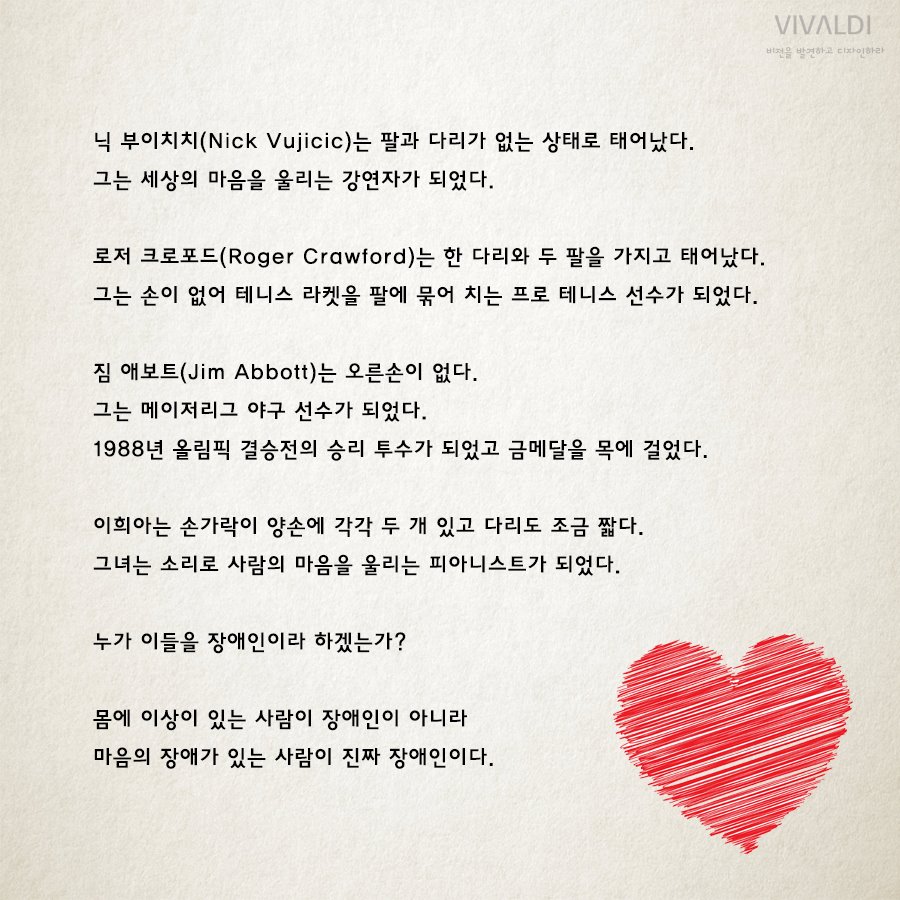 VIVALDI
비전을 발견하고 디자인하라
닉 부이치치(Nick Vujicic)는 팔과 다리가 없는 상태로 태어났다.
그는 세상의 마음을 울리는 강연자가 되었다.
로저 크로포드(Roger Crawford)는 한 다리와 두 팔을 가지고 태어났다.
그는 손이 없어 테니스 라켓을 팔에 묶어 치는 프로 테니스 선수가 되었다.
짐 애보트(Jim Abbott)는 오른손이 없다.
그는 메이저리그 야구 선수가 되었다.
1988년 올림픽 결승전의 승리 투수가 되었고 금메달을 목에 걸었다.
이희아는 손가락이 양손에 각각 두 개 있고 다리도 조금 짧다.
그녀는 소리로 사람의 마음을 울리는 피아니스트가 되었다.
누가 이들을 장애인이라 하겠는가?
몸에 이상이 있는 사람이 장애인이 아니라
마음의 장애가 있는 사람이 진짜 장애인이다.